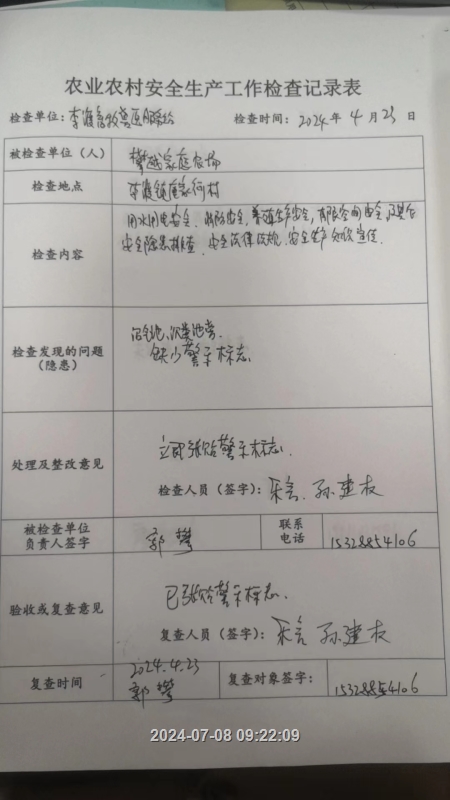 农业农村安全生产工作检查记录表
检查单位: 李渡畜牧兽医
检查时间: 2024年4月23日
被检查单位(人) 攀越家庭农场
检查地点 李渡镇
检查内容 用水用电安全、消防安全、养殖生产安全、有限空间安全、及其它
安全隐患排查、安全法律法规、安全生产知识宣传.
检查发现的问题
(隐患)
沼气池、沉粪池旁.
缺少警示标志.
处理及整改意见
立即张贴警示标志.
检查人员(签字): 孙建权
被检查单位
负责人签字
郭攀
联系
电话
15328854106
验收或复查意见
已张贴警示标志.
复查人员(签字): 孙建权
复查时间
2024.4.23
郭攀
复查对象签字:
15328854106
2024-07-08 09:22:09